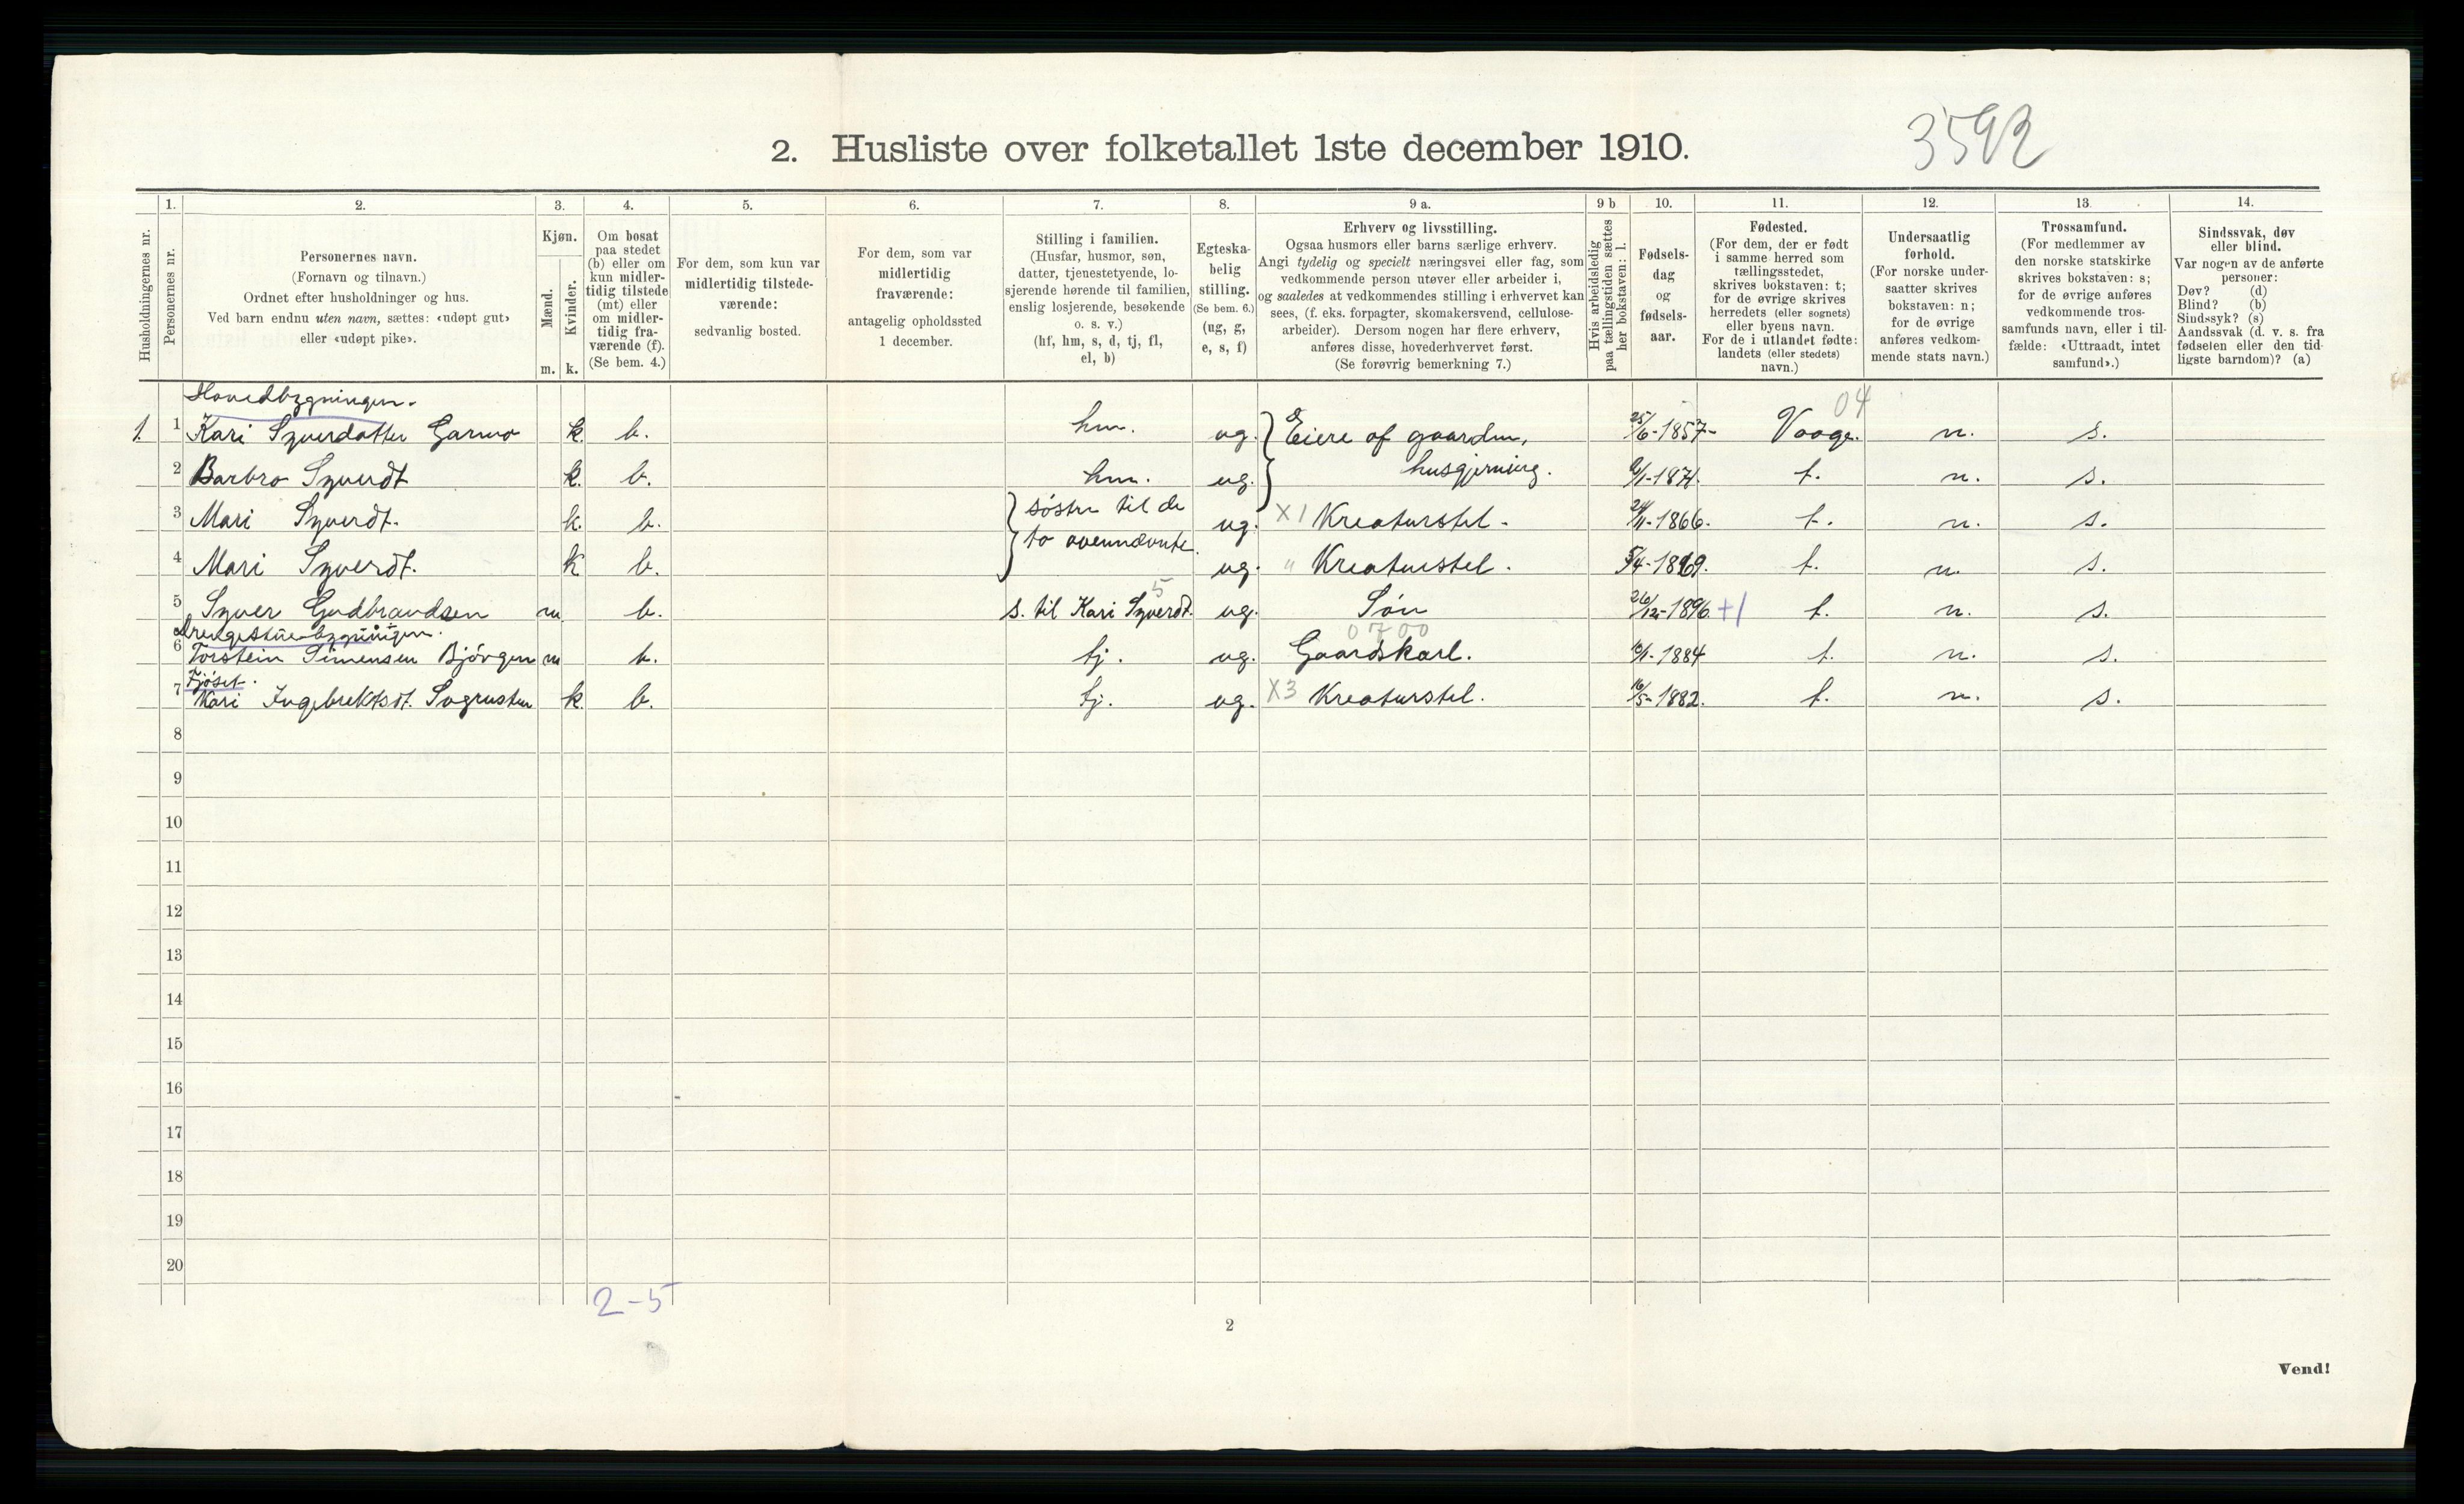 3592
2. Husliste over folketallet 1ste december 1910.
Husholdningernes nr.
1.
Personernes nr.
2.
Personernes navn.
(Fornavn og tilnavn.)
Ordnet efter husholdninger og hus.
Ved barn endnu uten navn, sættes: «udøpt gut»
eller «udøpt pike».
3.
Kjøn.
Mænd.
Kvinder.
m. k.
4.
Om bosat
paa stedet
(b) eller om
kun midler-
tidig tilstede
(mt) eller
om midler-
tidig fra-
værende (f).
(Se bem. 4.)
5.
For dem, som kun var
midlertidig tilstede-
værende:
sedvanlig bosted.
6.
For dem, som var
midlertidig
fraværende:
antagelig opholdssted
1 december.
7.
Stilling i familien.
(Husfar, husmor, søn,
datter, tjenestetyende, lo-
sjerende hørende til familien,
enslig losjerende, besøkende
o. s. v.)
(hf, hm, s, d, tj, fl,
el, b)
8.
Egteska-
belig
stilling.
(Se bem. 6.)
(ug, g,
e, s, f)
9 a.
Erhverv og livsstilling.
Ogsaa husmors eller barns særlige erhverv.
Angi tydelig og specielt næringsvei eller fag, som
vedkommende person utøver eller arbeider i,
og saaledes at vedkommendes stilling i erhvervet kan
sees, (f. eks. forpagter, skomakersvend, cellulose-
arbeider). Dersom nogen har flere erhverv,
anføres disse, hovederhvervet først.
(Se forøvrig bemerkning 7.)
9 b
Hvis arbeidsledig
paa tællingstiden sættes
her bokstaven: l.
10.
Fødsels-
dag
og
fødsels-
aar.
11.
Fødested.
(For dem, der er født
i samme herred som
tællingsstedet,
skrives bokstaven: t;
for de øvrige skrives
herredets (eller sognets)
eller byens navn.
For de i utlandet fødte:
landets (eller stedets)
navn.)
12.
Undersaatlig
forhold.
(For norske under-
saatter skrives
bokstaven: n;
for de øvrige
anføres vedkom-
mende stats navn.)
13.
Trossamfund.
(For medlemmer av
den norske statskirke
skrives bokstaven: s;
for de øvrige anføres
vedkommende tros-
samfunds navn, eller i til-
fælde: «Uttraadt, intet
samfund».)
14.
Sindssvak, døv
eller blind.
Var nogen av de anførte
personer:
Døv? (d)
Blind? (b)
Sindssyk? (s)
Aandssvak (d. v. s. fra
fødselen eller den tid-
ligste barndom)? (a)
Hovedbygningen.
04
1. 1 Kari Syverdatter Garmo k. b. hm. ug. Eiere af gaarden, 25/6-1857- Vaage. n. s.
2 Barbro Syverdt k. b. hm. ug. husgjerning. 6/1-1871. t. n. s.
3 Mari Syverdt. k. b. søstre til de ug. X1 Kreaturstel. 24/11-1866. t. n. s.
4 Mari Syverdt. k b. to ovennævnte. ug. " Kreaturstel. 5/4-1869. t. n. s.
5
5 Syver Gudbrandsen m b. s. til Kari Syverdt. ug. Søn 26/12-1896. +1 t. n. s.
Drengestuebygningen.
0700
6 Torstein Simensen Bjørgen m b. tj. ug. Gaardskarl. 10/1-1884 t. n. s.
Fjøset.
7 Mari Ingebrektsdt. Sagrusten k. b. tj. ug. X3 Kreaturstel. 16/5-1882. t. n. s.
8
9
10
11
12
13
14
15
16
17
18
19
20
2-5
2
Vend!